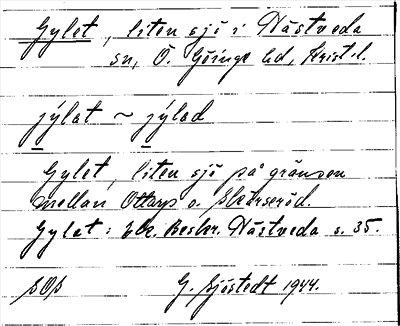 Gylet, liten sjö i Nästveda
sn, Ö. Göinge hd, Krist. l.
jýlet ~ jýlad
Gylet, liten sjö på gränsen
mellan Ottarp o. Skärseröd.
Gylet: Ek. Beskr. Nästveda s. 35.
SOS G. Sjöstedt 1944.